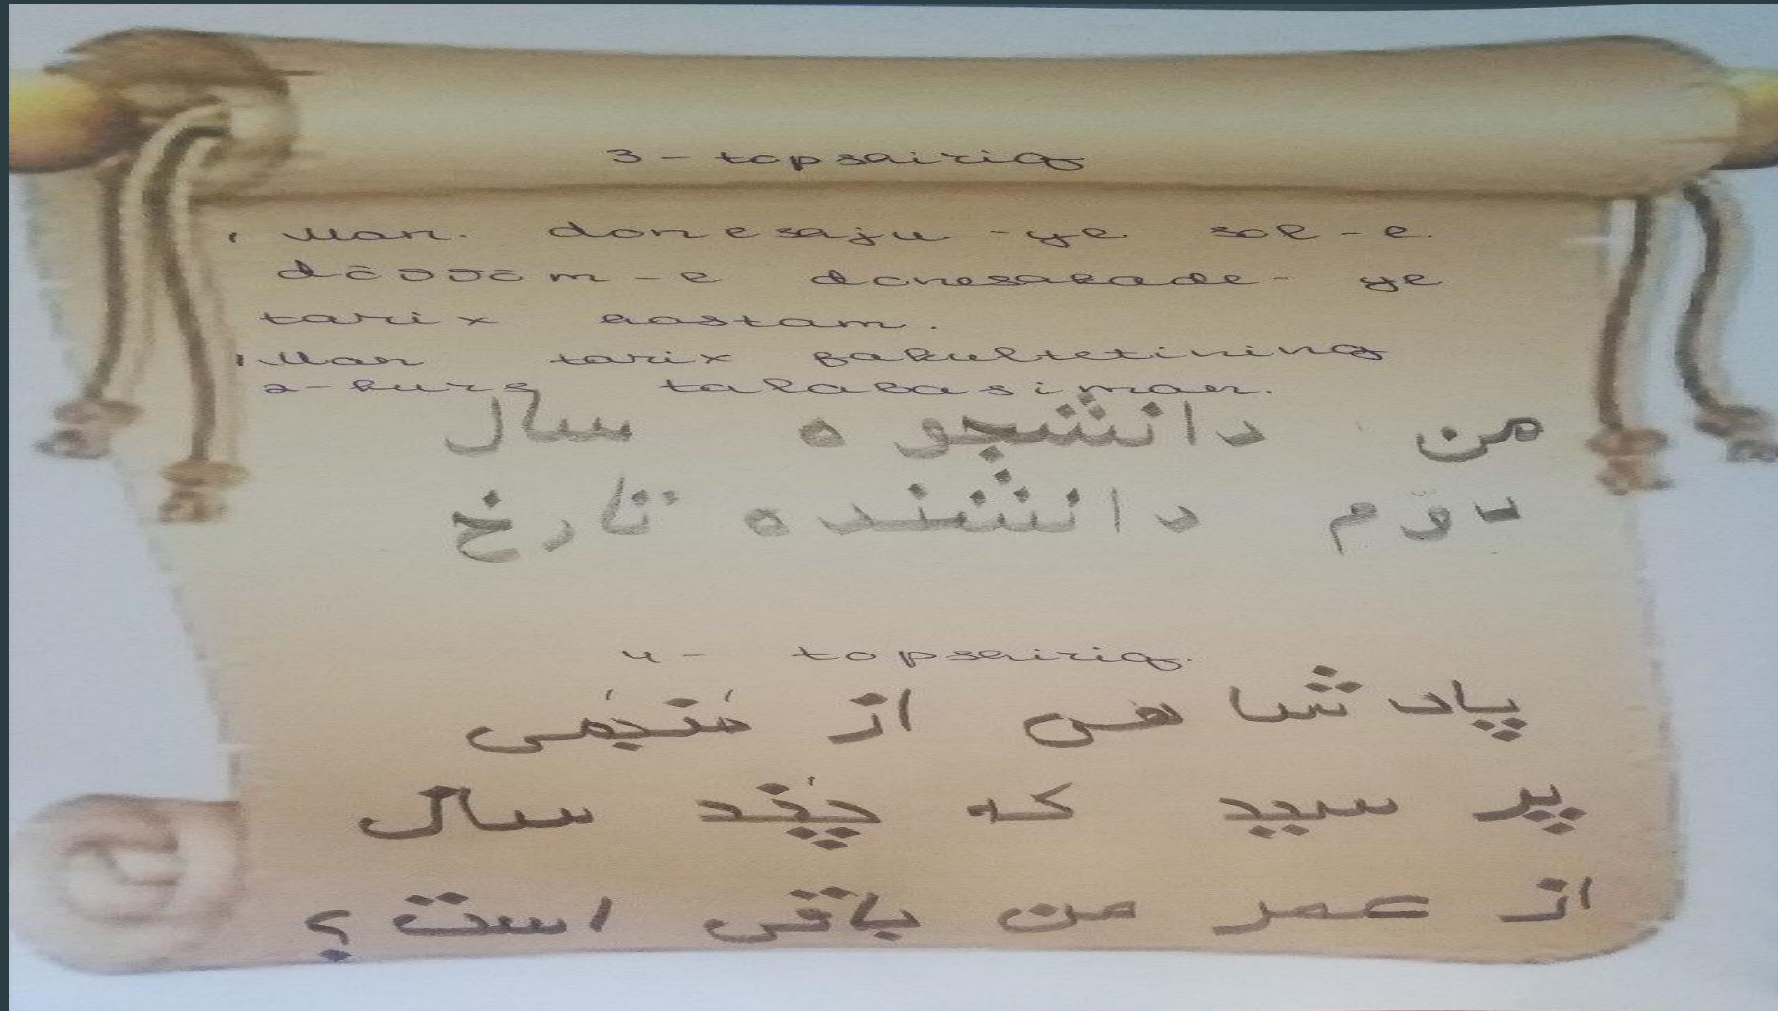 3 - topshiriq
1 Man. doneshju - ye sol - e
dōvvōm - e doneshkade - ye
tarix hastam.
1 Man tarix fakultetining
2 - kurs talabasiman.
من دانشجو ه سال
دوّم دانشنده تارخ
4 - topshiriq.
پاد شا هی از مُنَجمی
پر سید که چَند سال
از عمر من باقی است ؟